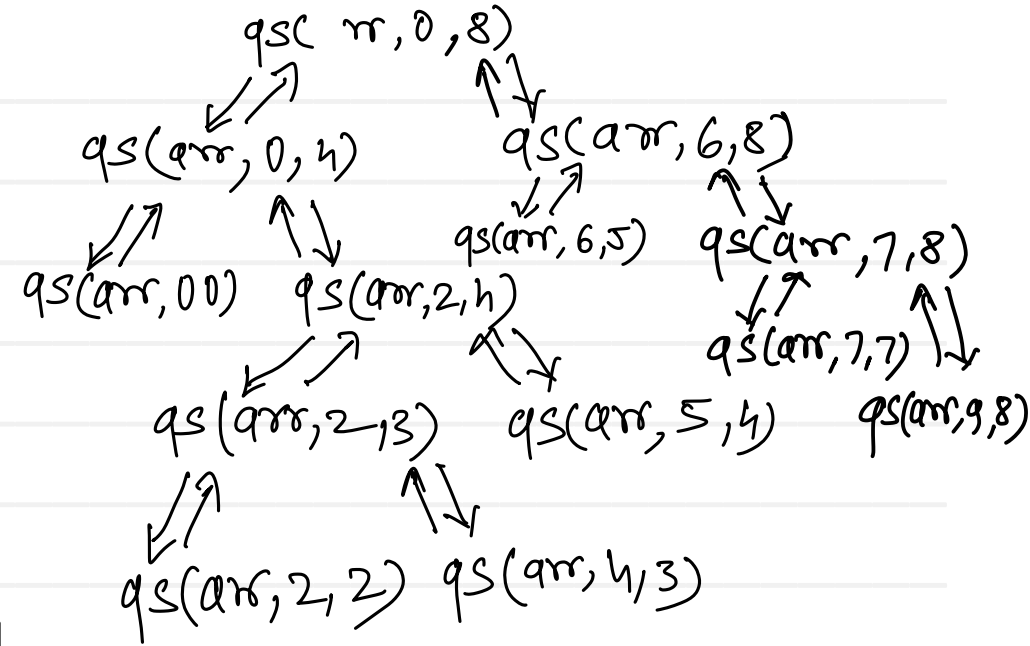 qs( rr, 0, 8)
qs(arr, 0, 4) qs(arr, 6, 8)
qs(arr, 6, 5) qs(arr, 7, 8)
qs(arr, 00) qs(arr, 2, 4)
qs(arr, 7, 7)
qs(arr, 2, 3) qs(arr, 5, 4) qs(arr, 9, 8)
qs(arr, 2, 2) qs(arr, 4, 3)